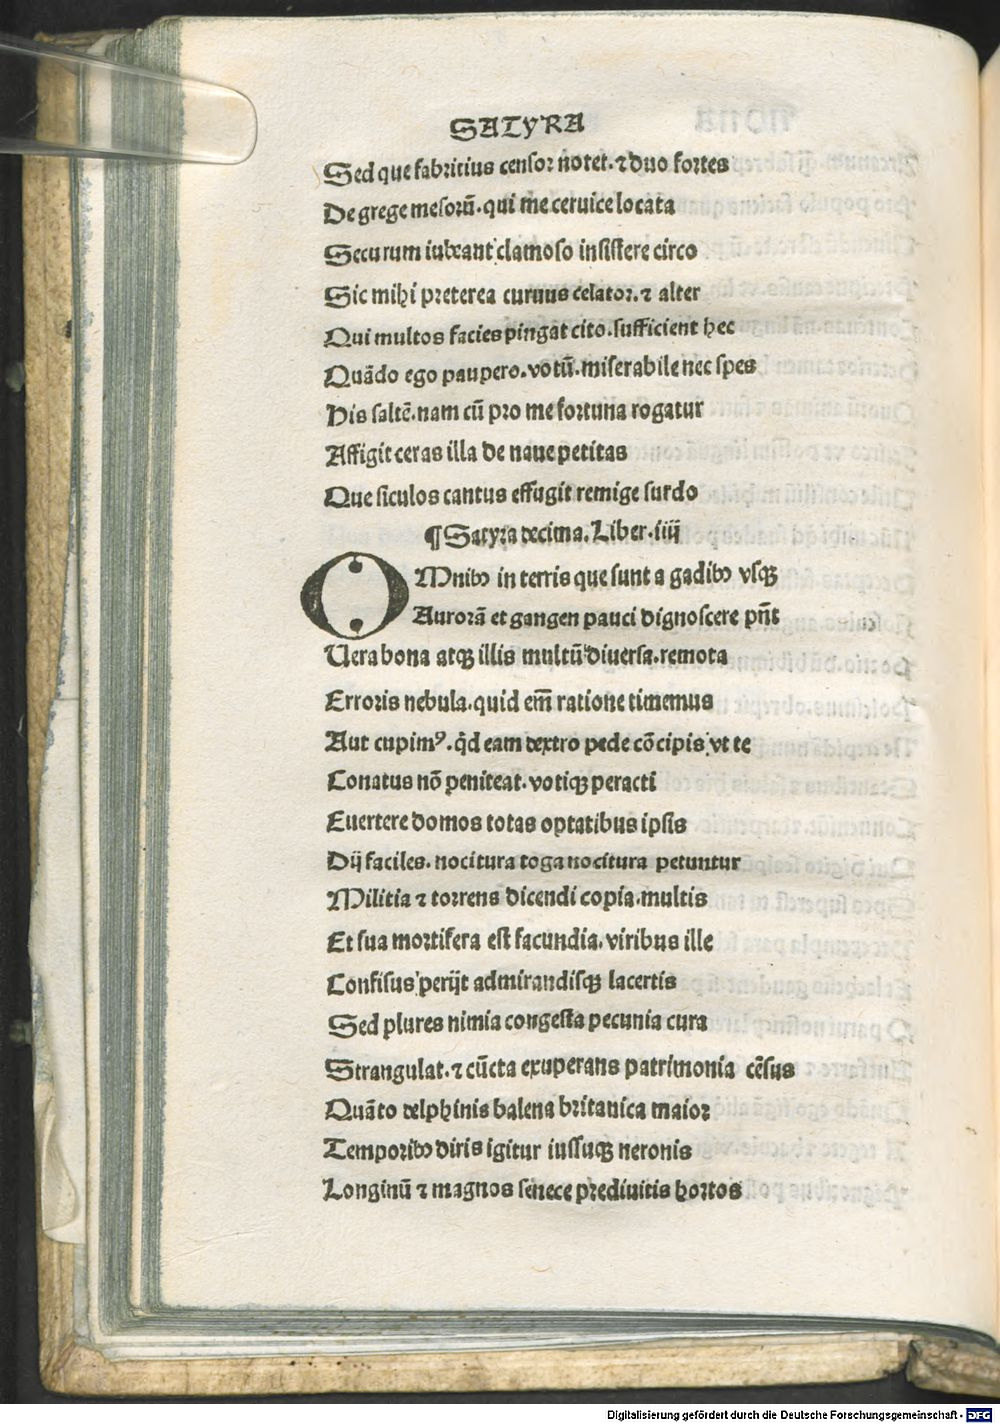 SATYRA
Sed que fabritius censor notet. ⁊ duo fortes
De grege mesorū. qui me ceruice locata
Securum iubeant clamoso insistere circo
Sic mihi preterea curuus celator. ⁊ alter
Qui multos facies pingat cito. sufficient hec
Quādo ego paupero. votū. miserabile nec spes
His saltē. nam cū pro me fortuna rogatur
Affigit ceras illa de naue petitas
Que siculos cantus effugit remige surdo
¶ Satyra decima. Liber. iiij
OMnibꝰ in terris que sunt a gadibꝰ vsqꝫ
Aurorā et gangen pauci dignoscere pn̄t
Uera bona atqꝫ illis multū diuersa. remota
Erroris nebula. quid em̄ ratione timemus
Aut cupimꝰ. qd̄ eam dextro pede cōcipis vt te
Conatus nō peniteat. votiqꝫ peracti
Euertere domos totas optatibus ipsis
Dij faciles. nocitura toga nocitura petuntur
Militia ⁊ torrens dicendi copia. multis
Et sua mortifera est facundia. viribus ille
Confisus perijt admirandisqꝫ lacertis
Sed plures nimia congesta pecunia cura
Strangulat. ⁊ cūcta exuperans patrimonia cēsus
Quāto delphinis balena britanica maior
Temporibꝰ diris igitur iussuqꝫ neronis
Longinū ⁊ magnos senece prediuitis hortos
Digitalisierung gefördert durch die Deutsche Forschungsgemeinschaft - DFG